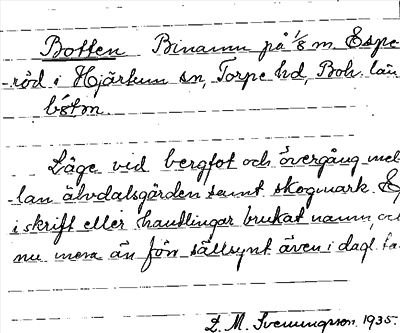 Botten Binamn på 1/8 m. Espe-
-röd i Hjärtum sn, Torpe hd, Boh. län
Läge vid bergfot och övergång mel-
-lan älvdalsgärden samt skogmark. Ej
i skrift eller handlingar brukat namn, och
nu mera än förr sällsynt även i dagl. ta
L. M. Svenungsson. 1935.